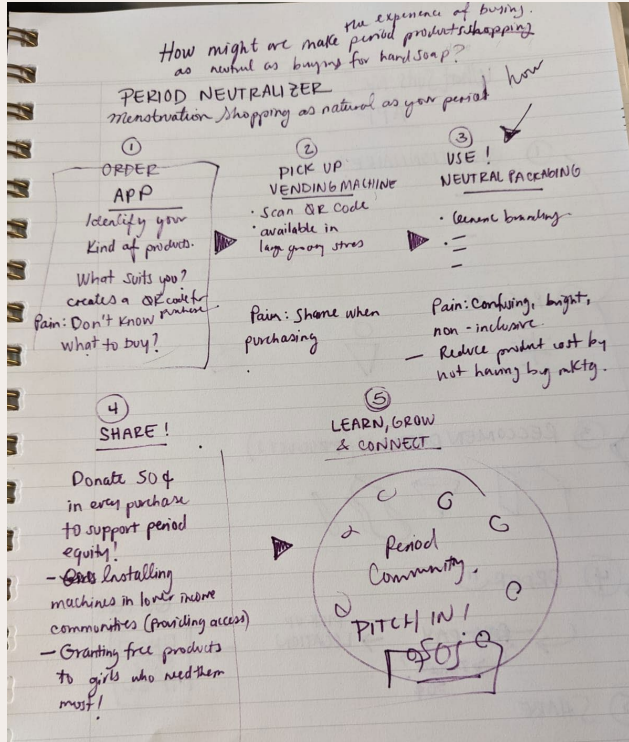 the experience of buying.
How might we make period products shopping
as neutral as buying for hand soap?
PERIOD NEUTRALIZER
Menstruation Shopping as natural as your period
how
①
ORDER
APP
Identify your
Kind of products.
What suits you?
creates a QR code for
purchase
Pain: Don't know
what to buy?
②
PICK UP
VENDING MACHINE
• Scan QR Code
• available in
large grocery stores
Pain: Shame when
purchasing
③
USE!
NEUTRAL PACKAGING
• Generic branding
Pain: Confusing, bright,
non-inclusive.
— Reduce product cost by
not having big mktg.
④
SHARE!
Donate 50¢
in every purchase
to support period
equity!
- Installing
machines in lower income
communities (providing access)
- Granting free products
to girls who need them
most!
⑤
LEARN, GROW
& CONNECT
Period
Community.
PITCH IN!